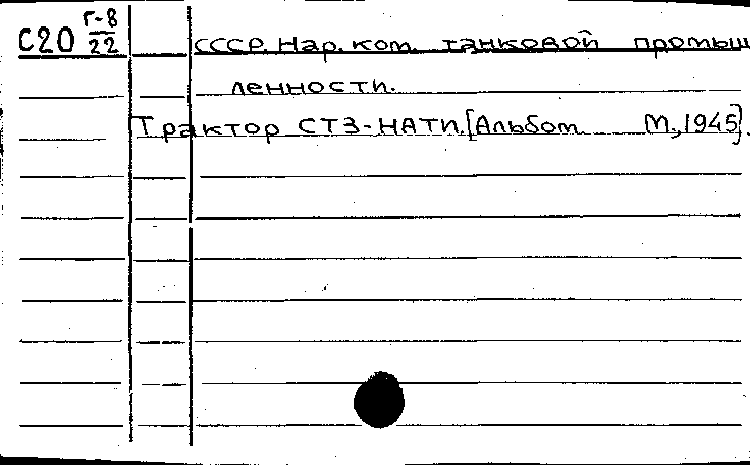 С20 Г-8/22 СССР. Нар. ком. танковой промыш
ленности.
Трактор СТЗ-НАТИ. [Альбом М., 1945].